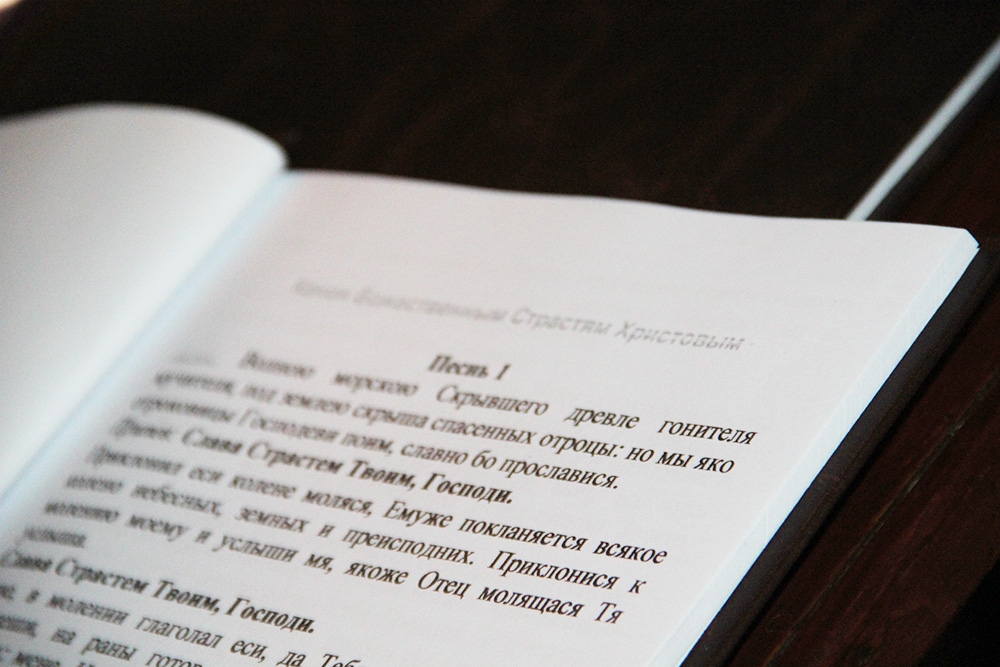 Канон Божественным Страстям Христовым
Песнь 1
Волною морскою Скрывшего древле гонителя
мучителя, под землею скрыша спасенных отроцы: но мы яко
отроковицы Господеви поим, славно бо прославися.
Припев: Слава Страстем Твоим, Господи.
Приклонил еси колене моляся, Емуже покланяется всякое
колено небесных, земных и преисподних. Приклонися к
молению моему и услыши мя, якоже Отец молящася Тя
услыша.
Слава Страстем Твоим, Господи.
в молении глаголал еси, да
на раны готов